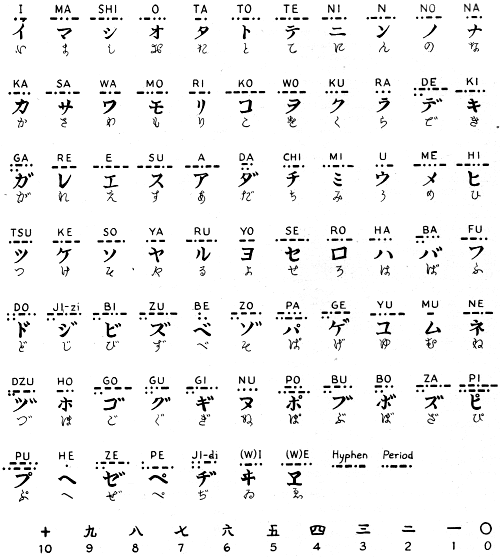 I MA SHI O TA TO TE NI N NO NA
イ マ シ オ タ ト テ ニ ン ノ ナ
い ま し お た と て に ん の な
KA SA WA MO RI KO WO KU RA DE KI
カ サ ワ モ リ コ ヲ ク ラ デ キ
か さ わ も り こ を く ら で き
GA RE E SU A DA CHI MI U ME HI
ガ レ エ ス ア ダ チ ミ ウ メ ヒ
が れ え す あ だ ち み う め ひ
TSU KE SO YA RU YO SE RO HA BA FU
ツ ケ ソ ヤ ル ヨ セ ロ ハ バ フ
つ け そ や る よ せ ろ は ば ふ
DO JI-zi BI ZU BE ZO PA GE YU MU NE
ド ジ ビ ズ ベ ゾ パ ゲ ユ ム ネ
ど じ び ず べ ぞ ぱ げ ゆ む ね
DZU HO GO GU GI NU PO BU BO ZA PI
ヅ ホ ゴ グ ギ ヌ ポ ブ ボ ズ ピ
づ ほ ご ぐ ぎ ぬ ぽ ぶ ぼ ざ ぴ
PU HE ZE PE JI-di (W)I (W)E Hyphen Period
プ ヘ ゼ ペ ヂ ヰ ヱ
ぷ へ ぜ ぺ ぢ ゐ ゑ
十 九 八 七 六 五 四 三 二 一 〇
10 9 8 7 6 5 4 3 2 1 0